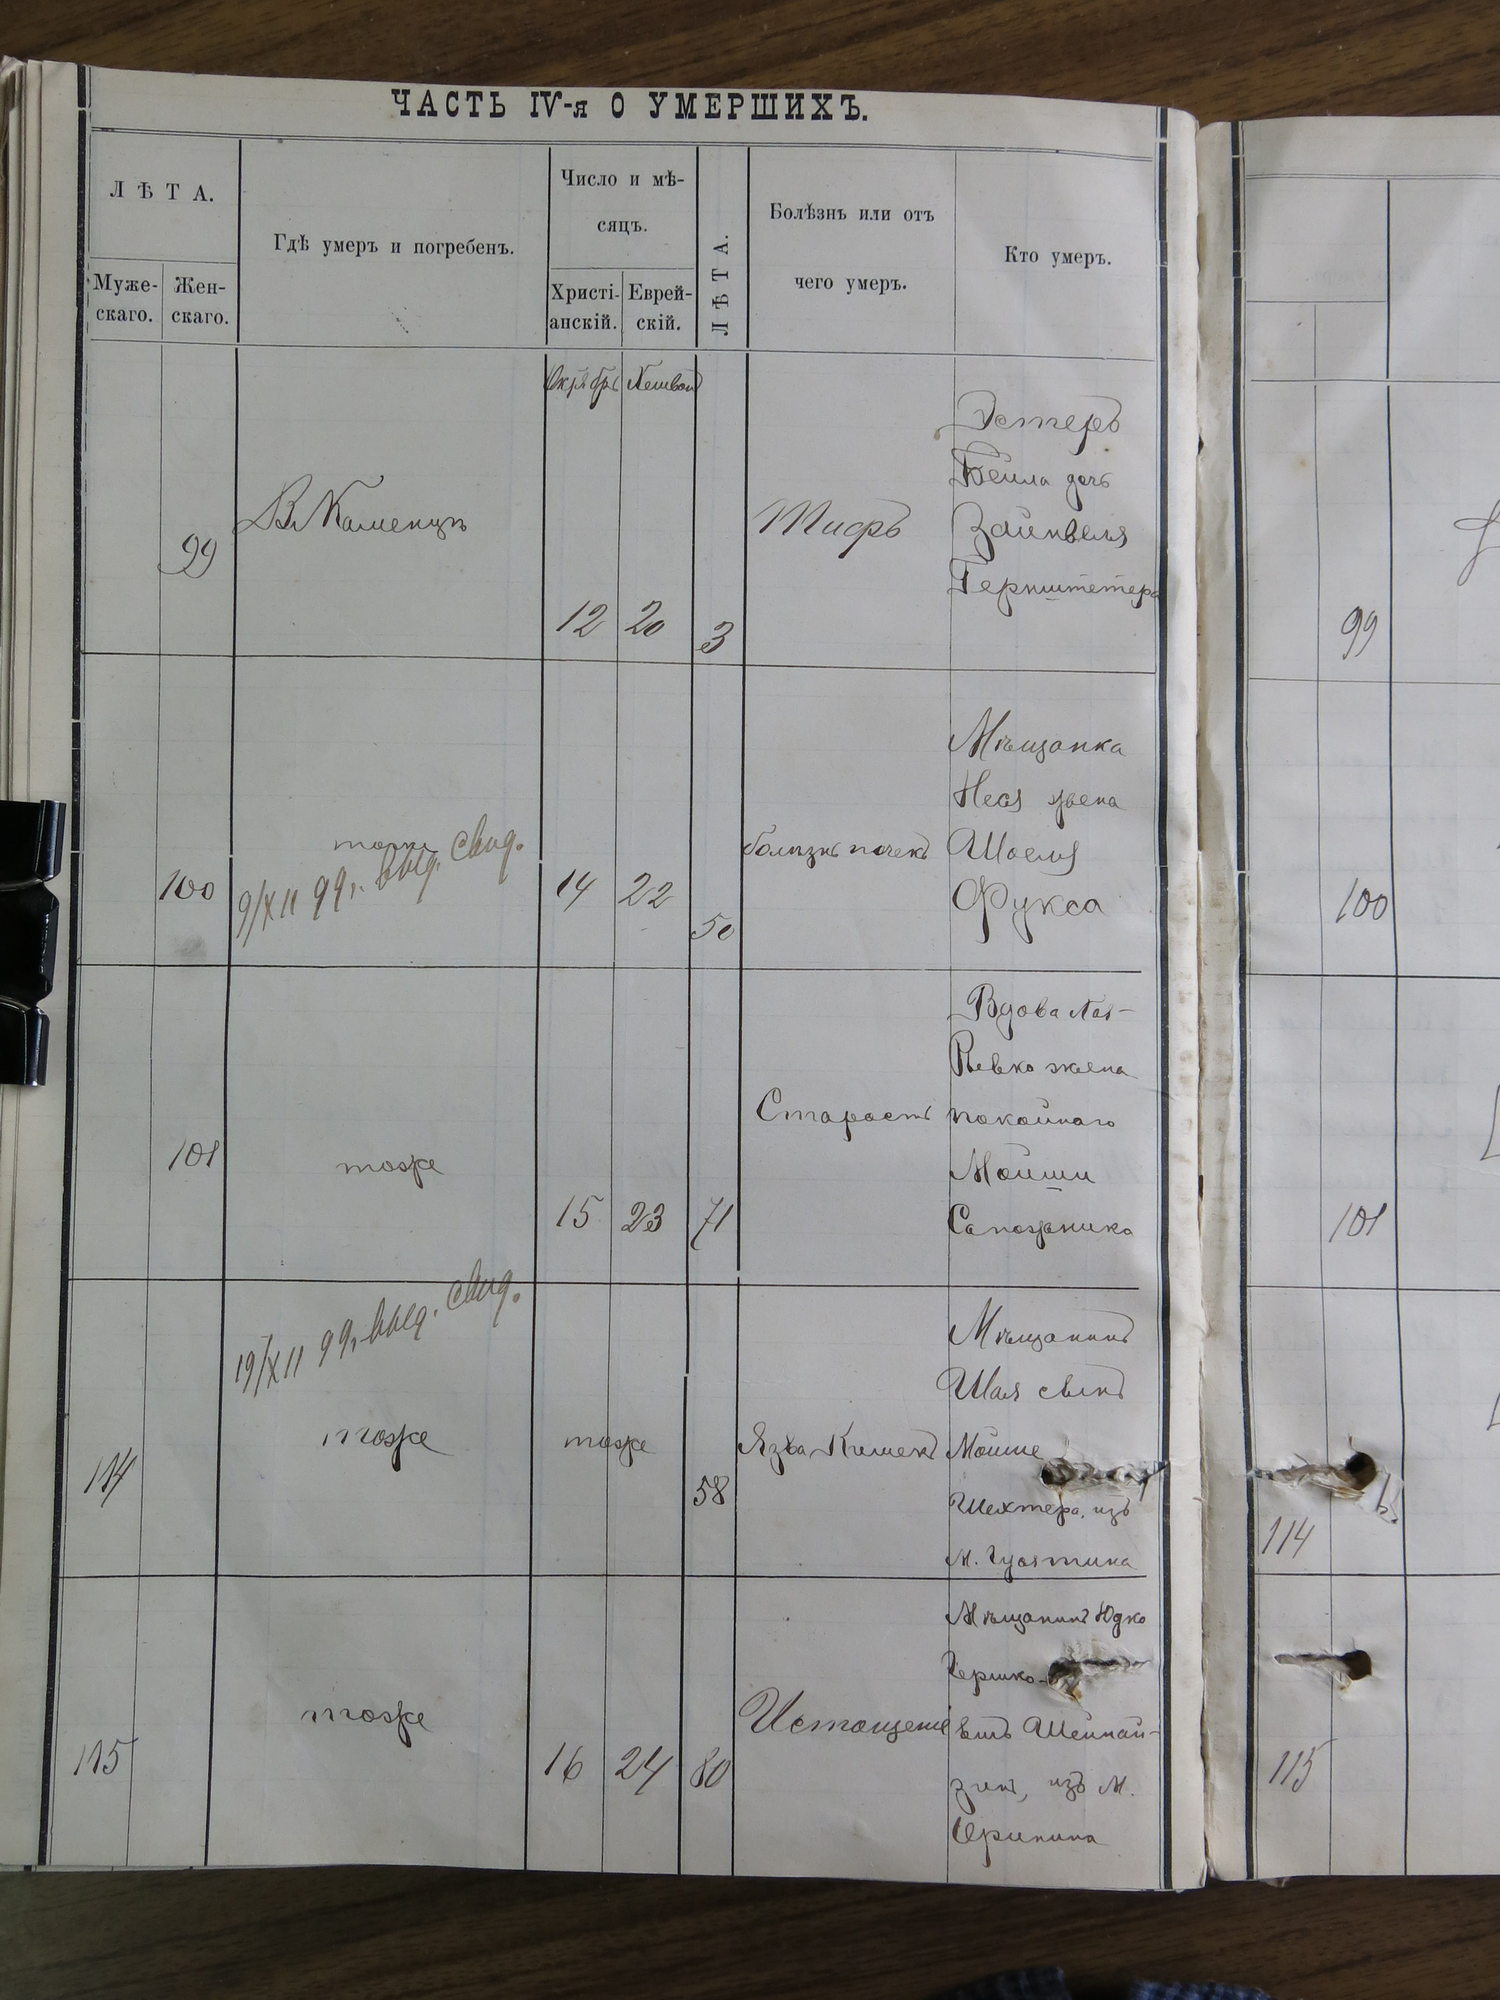 ЧАСТЬ IV-я О УМЕРШИХЪ.
ЛѢТА.
Муже-
скаго.
Жен-
скаго.
Гдѣ умеръ и погребенъ.
Число и мѣ-
сяцъ.
Христі-
анскій.
Еврей-
скій.
ЛѢТА.
Болѣзнь или отъ
чего умеръ.
Кто умеръ.
Октябрь
Хешван
99
В. Каменцѣ
12
20
3
Тифъ
Эстеръ
Бейла дочь
Зайнвеля
Гернштетера
100
тоже
9/XII 99 г. выд. свид.
14
22
50
болѣзнь почекъ
Мѣщанка
Неся жена
Шоеля
Фукса
101
тоже
15
23
71
Старость
Вдова Лая-
Ривка жена
покойнаго
Мойши
Сапожника
19/XII 99 г. выд. свид.
114
тоже
тоже
58
Язва Кишекъ
Мѣщанинъ
Шая сынъ
Мойше
Шехтера, изъ
м. Гусятина
115
тоже
16
24
80
Истощеніе
Мѣщанинъ Юдко
Гершко-
вичъ Шейнай-
зенъ, изъ м.
Оринина
99
100
101
114
115